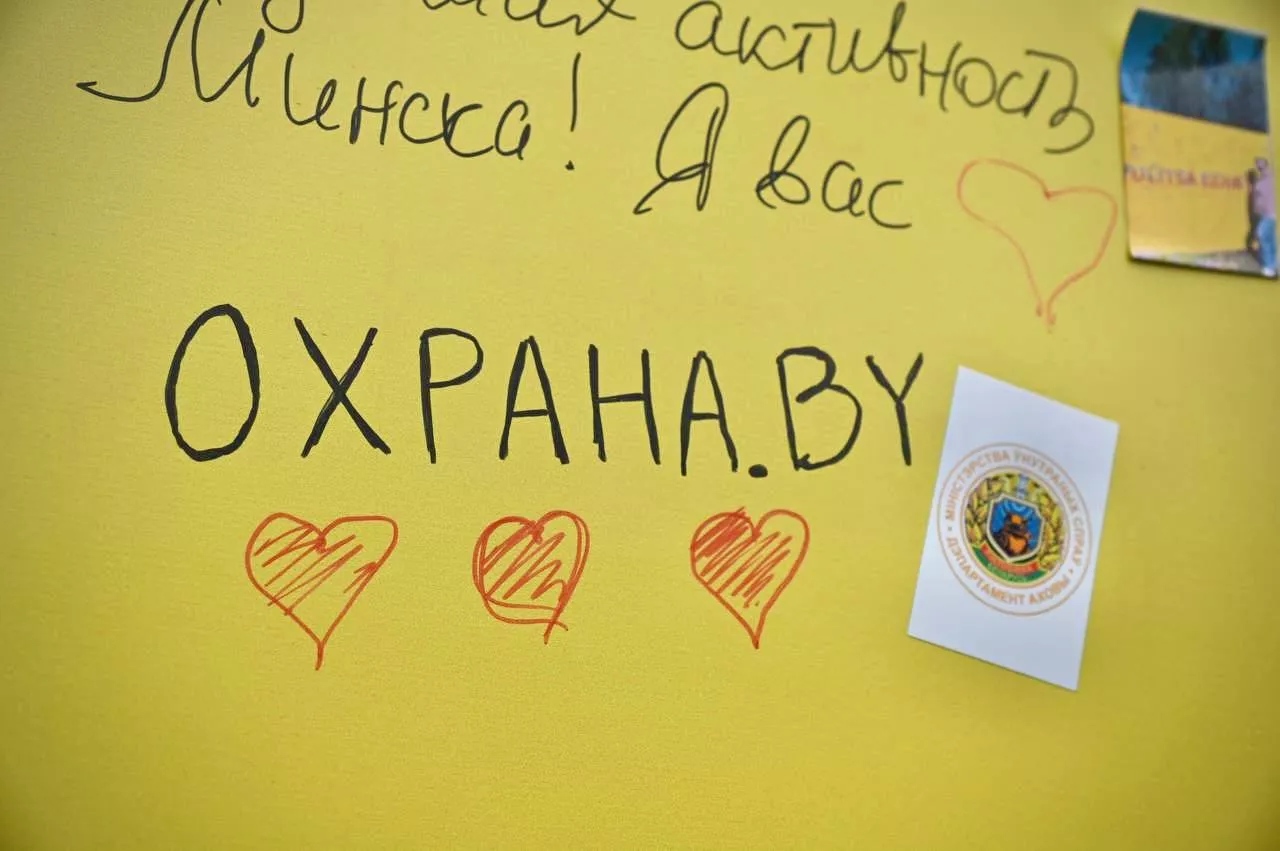 активность
Минска! Я вас
ОХРАНА.BY
МІНІСТЭРСТВА УНУТРАНЫХ СПРАЎ
ДЭПАРТАМЕНТ АХОВЫ